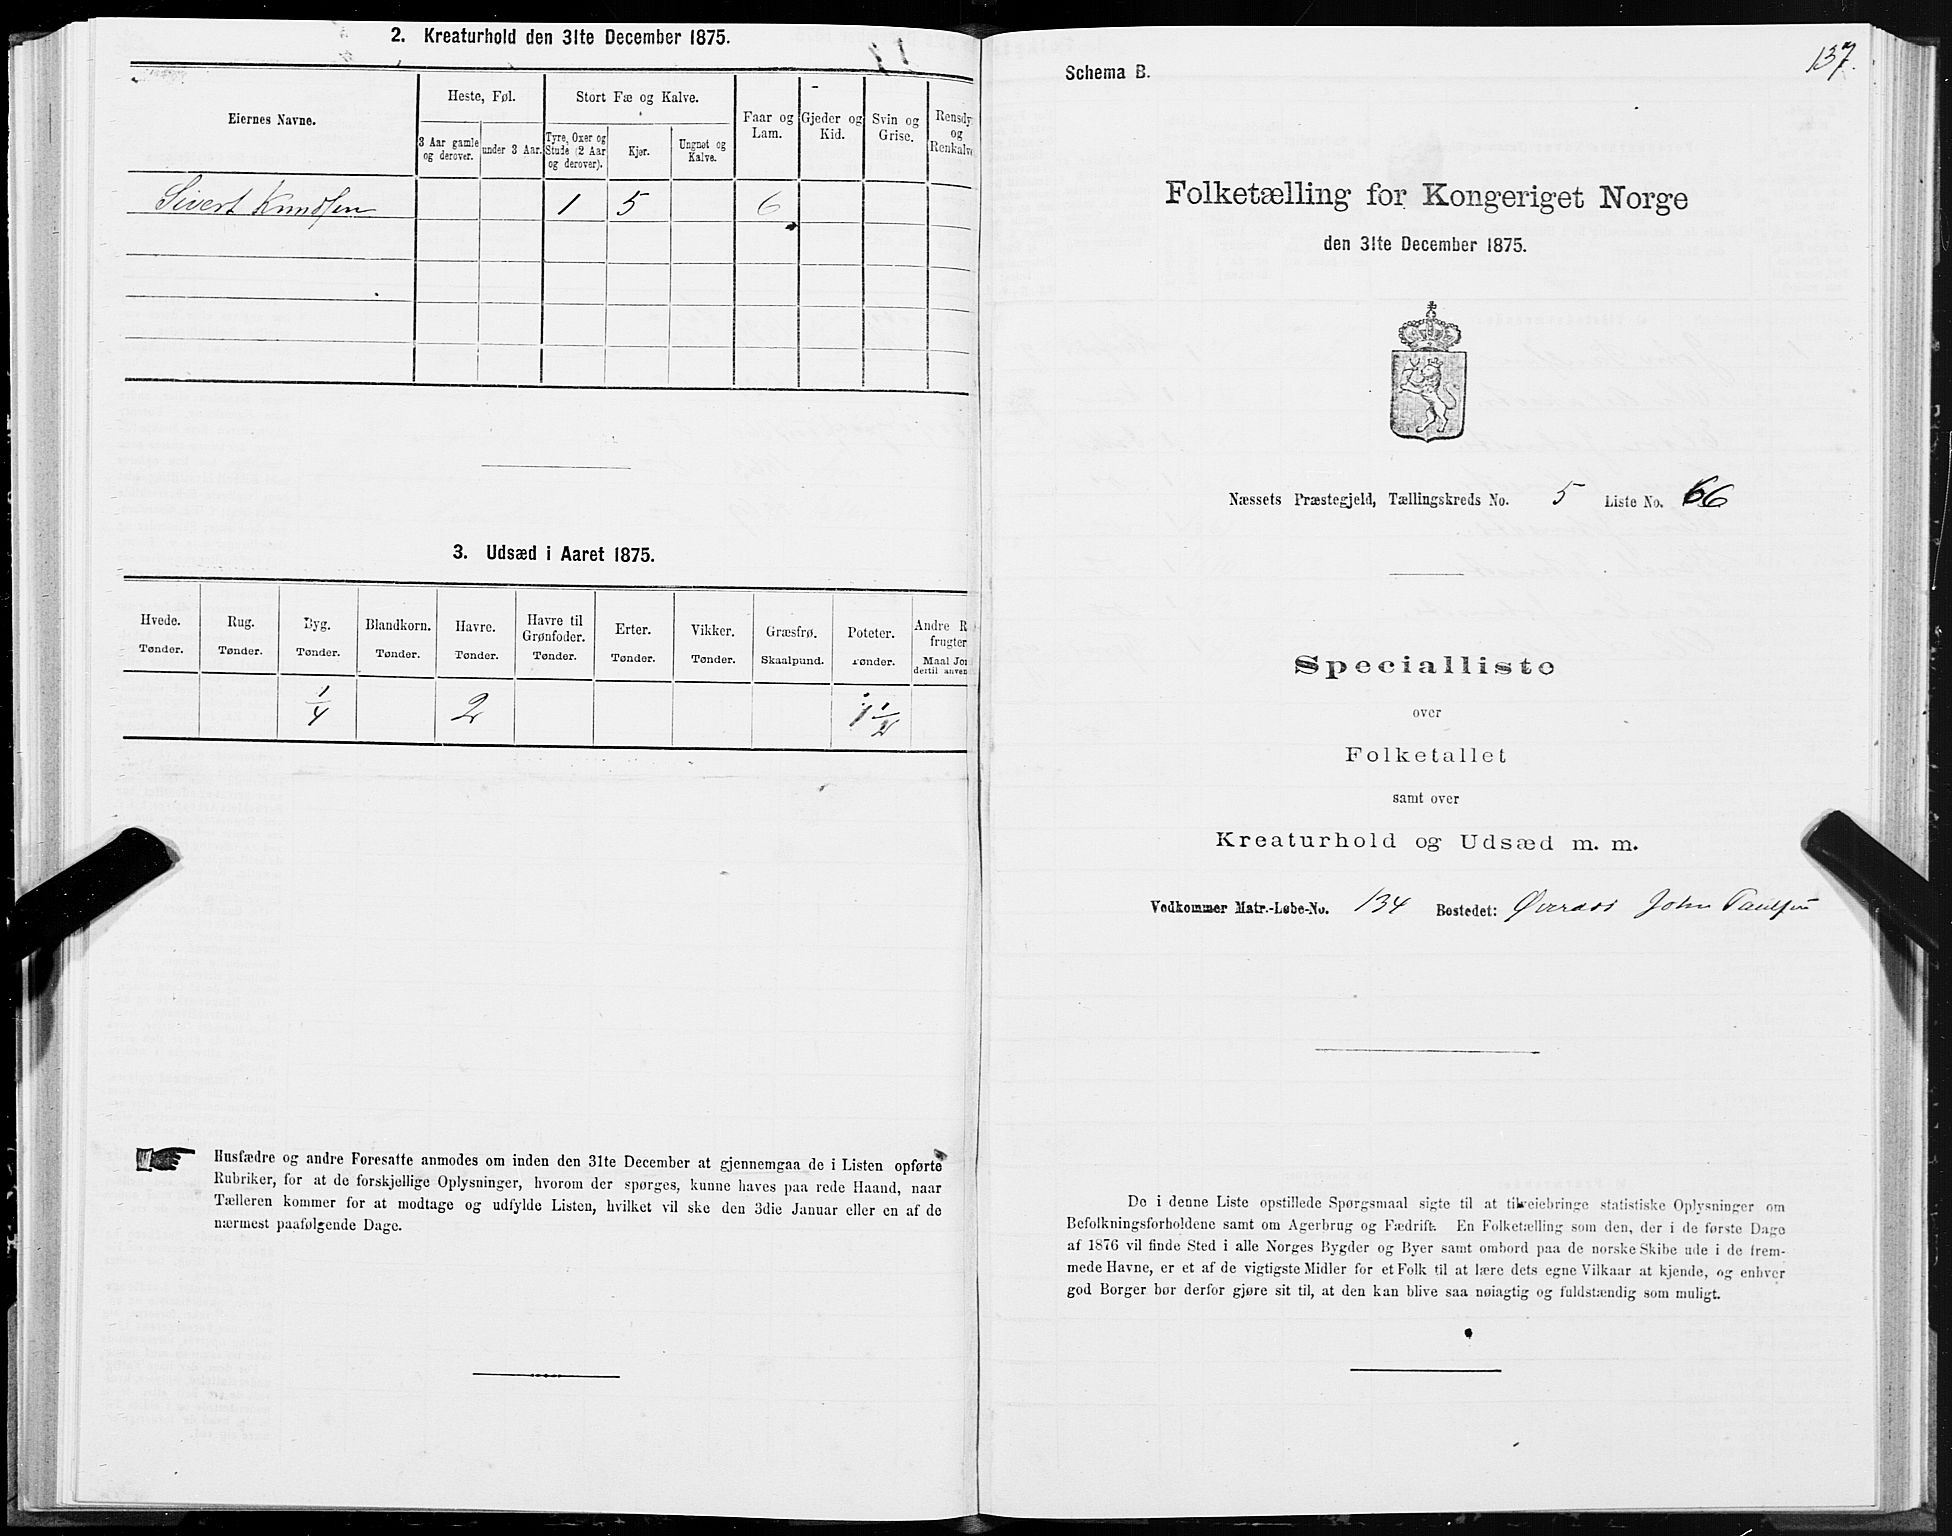 2. Kreaturhold den 31te December 1875.
Eiernes Navne.
Heste, Føl.
Stort Fæ og Kalve.
Faar og
Lam.
Gjeder og
Kid.
Svin og
Grise.
Rensdy
og
Renkalve
3 Aar gamle
og derover.
under 3 Aar.
Tyre, Oxer og
Stude (2 Aar
og derover).
Kjør.
Ungnøt og
Kalve.
Sivert Knudsen 1 5 6
3. Udsæd i Aaret 1875.
Hvede.
Tønder.
Rug.
Tønder.
Byg.
Tønder.
Blandkorn.
Tønder.
Havre.
Tønder.
Havre til
Grønfoder.
Tønder.
Erter.
Tønder.
Vikker.
Tønder.
Græsfrø.
Skaalpund.
Poteter.
Tønder.
Andre R
frugter
Maal Jor
dertil anven
1/4 2 1 1/2
Husfædre og andre Foresatte anmodes om inden den 31te December at gjennemgaa de i Listen opførte
Rubriker, for at de forskjellige Oplysninger, hvorom der spørges, kunne haves paa rede Haand, naar
Tælleren kommer for at modtage og udfylde Listen, hvilket vil ske den 3die Januar eller en af de
nærmest paafølgende Dage.
137.
Schema B.
Folketælling for Kongeriget Norge
den 31te December 1875.
Næssets Præstegjeld, Tællingskreds No. 5 Liste No. 66
Specialliste
over
Folketallet
samt over
Kreaturhold og Udsæd m. m.
Vedkommer Matr.-Løbe-No. 134 Bostedet: Øveraas John Paulsen
De i denne Liste opstillede Spørgsmaal sigte til at tilveiebringe statistiske Oplysninger om
Befolkningsforholdene samt om Agerbrug og Fædrift. En Folketælling som den, der i de første Dage
af 1876 vil finde Sted i alle Norges Bygder og Byer samt ombord paa de norske Skibe ude i de frem-
mede Havne, er et af de vigtigste Midler for et Folk til at lære dets egne Vilkaar at kjende, og enhver
god Borger bør derfor gjøre sit til, at den kan blive saa nøiagtig og fuldstændig som muligt.